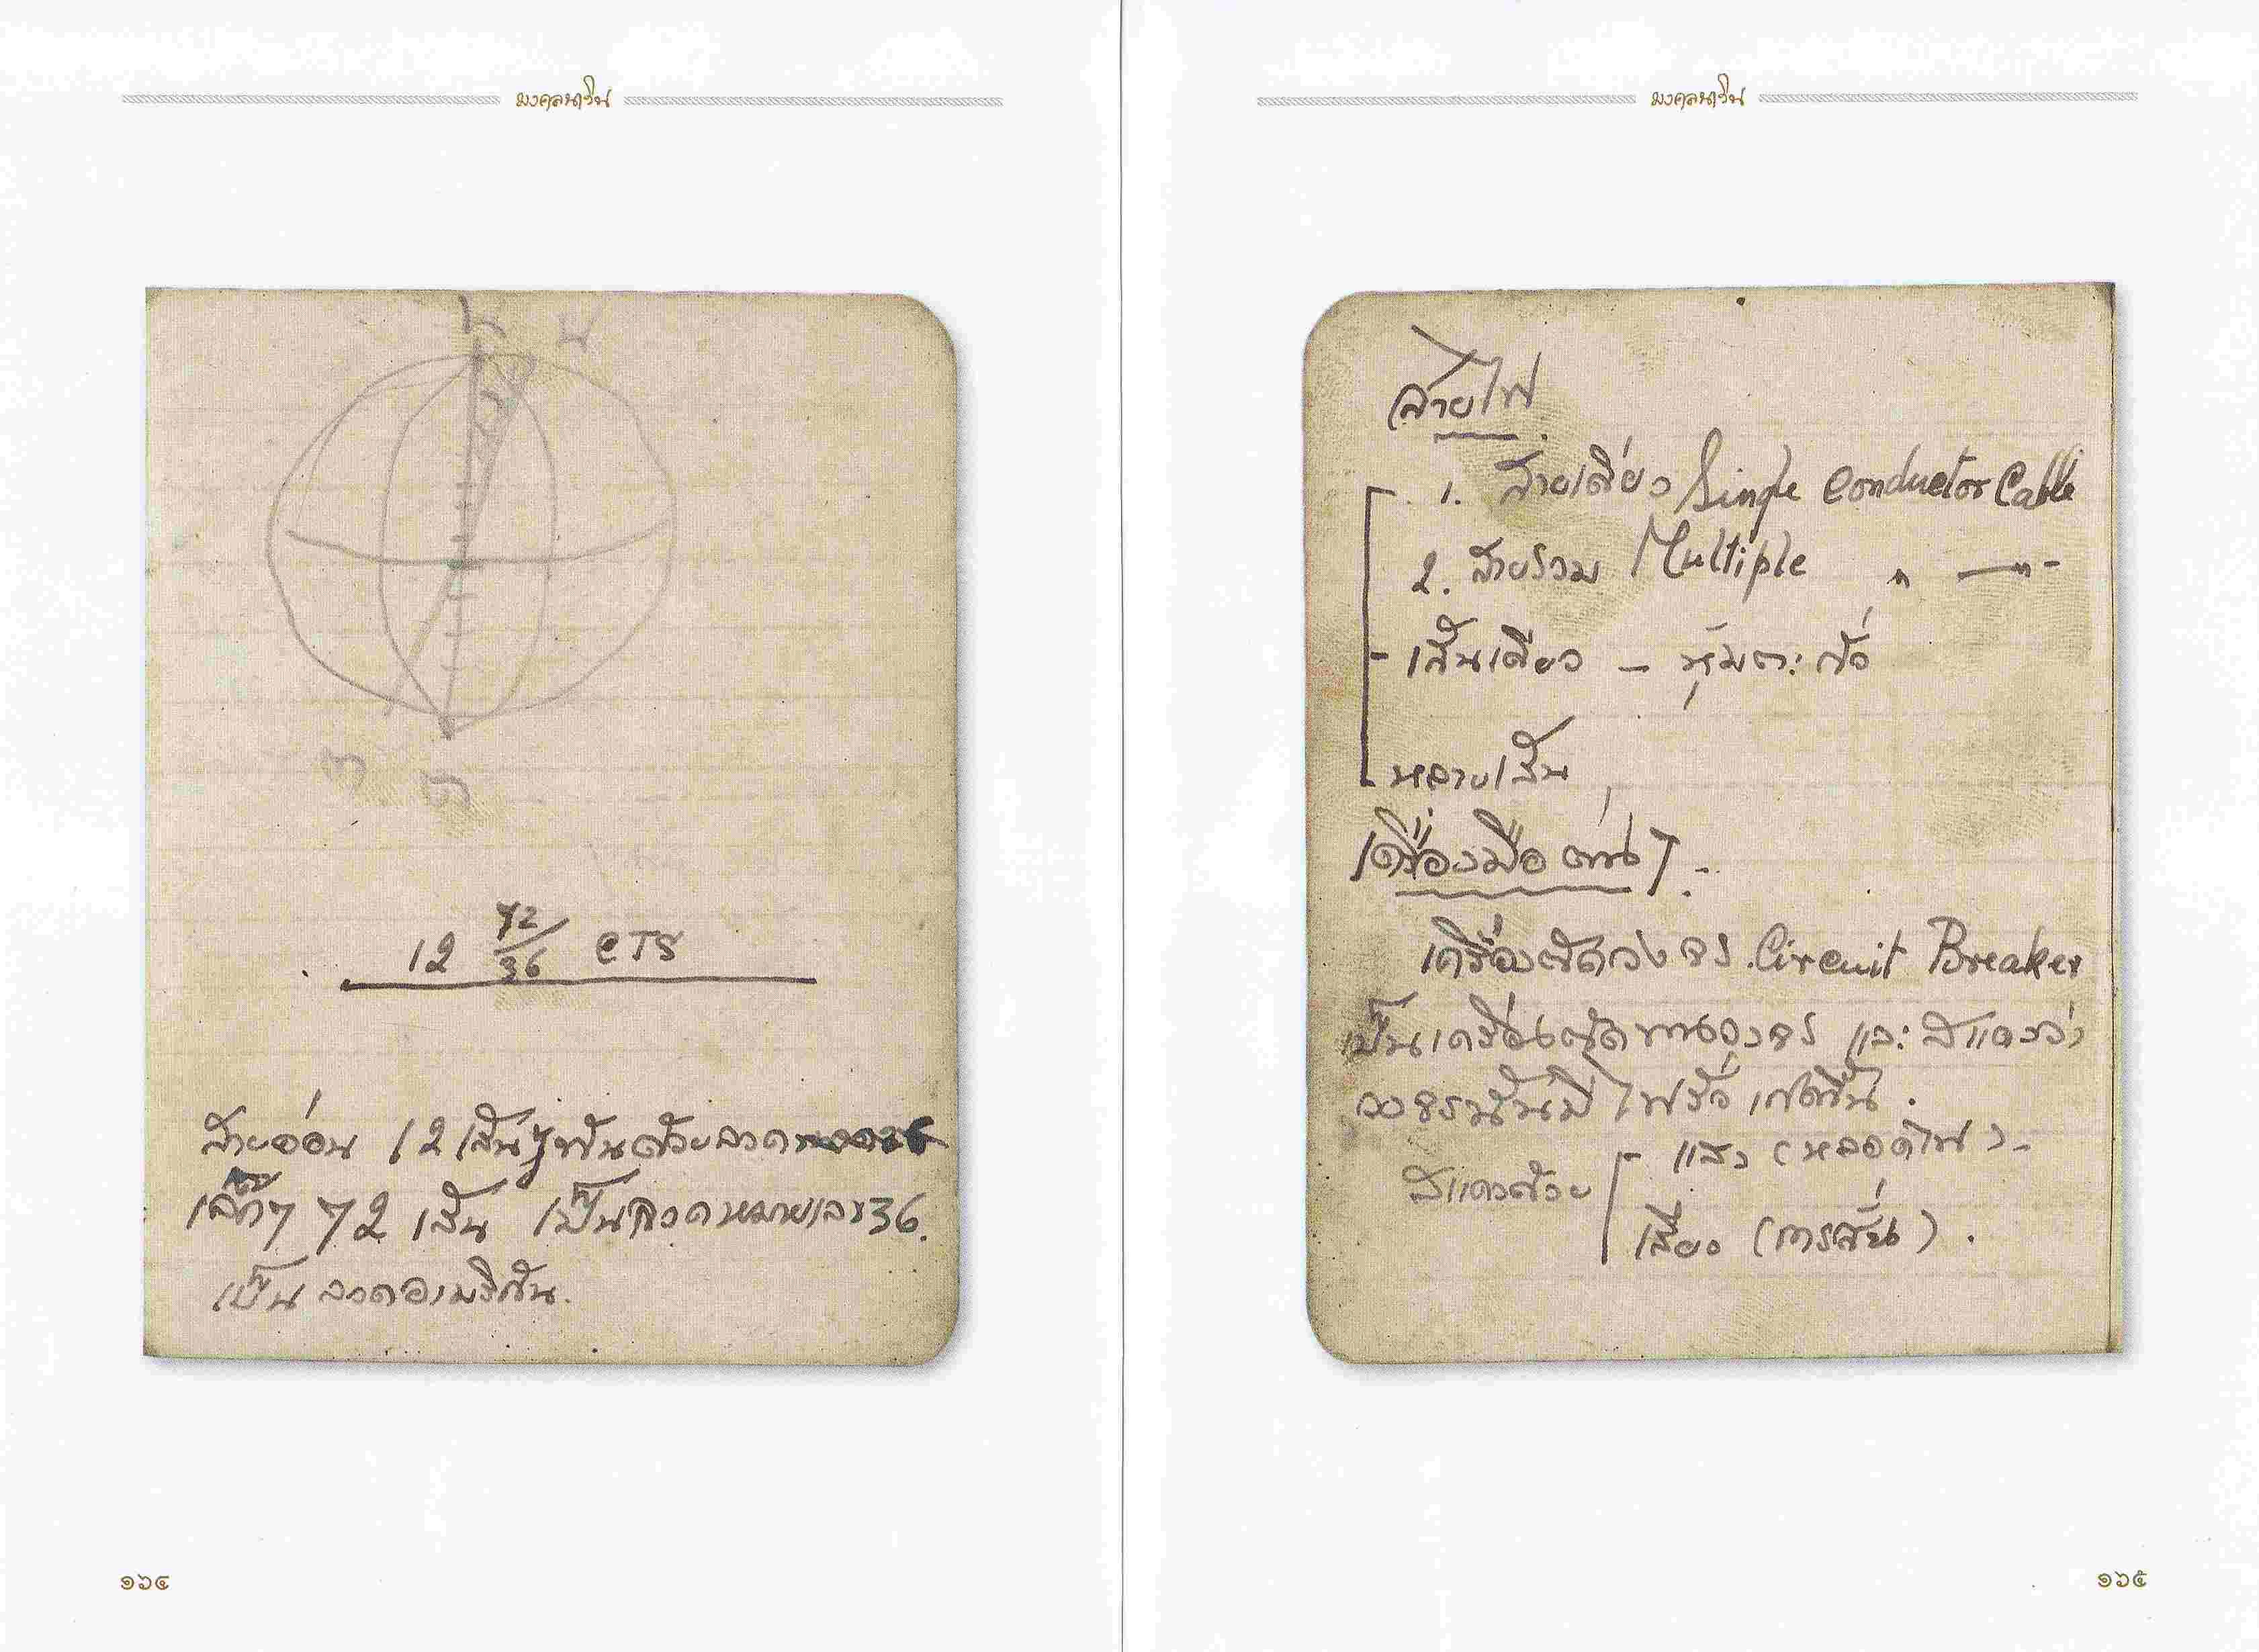 มงคลนาวิน
น น
ต ต
12 72/36 CTS
สายอ่อน 12 เส้น พันด้วยลวด
เล็กๆ 72 เส้น เป็นลวดหมายเลข 36.
เป็น ลวดอเมริกัน.
๑๖๔
มงคลนาวิน
สายไฟ
1. สายเดี่ยว Single Conductor Cable
2. สายรวม Multiple " — " -
- เส้นเดียว - หุ้มตะกั่ว
หลายเส้น
เครื่องมือต่างๆ .-
เครื่องตัดวงจร Circuit Breaker
เป็นเครื่องตัดทางวงจร และสแดงว่า
วงจรนั้นมีไฟรั่วเกิดขึ้น.
สแดงด้วย
- แสง (หลอดไฟ) -
เสียง (การสั่น) .
๑๖๕